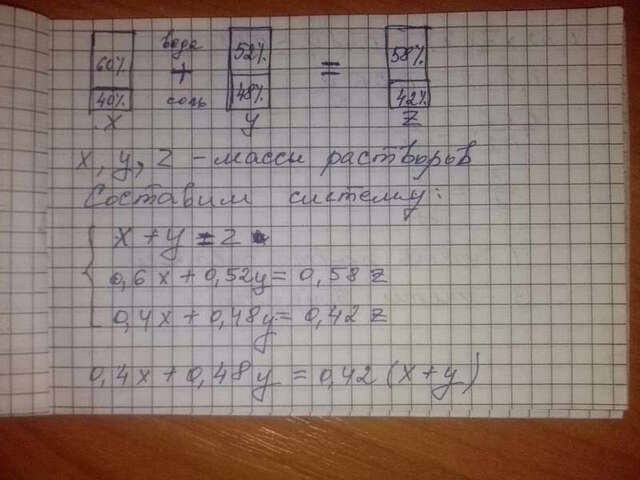 60% вода 52% 58%
+ =
40% соль 48% 42%
x y z
x, y, z - массы растворов
Составим систему:
x + y = z
0,6x + 0,52y = 0,58 z
0,4x + 0,48y = 0,42 z
0,4x + 0,48y = 0,42 (x+y)